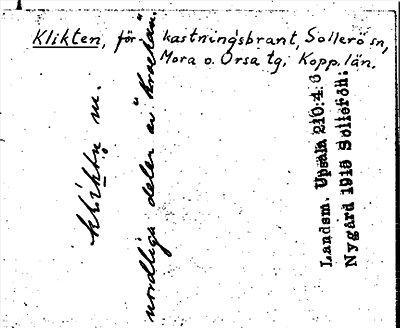 Klikten, för- kastningsbrant, Sollerö sn,
Mora o. Orsa tg, Kopp. län.
nordliga delen av
Landsm. Upsala 210:4:6
Nygård 1915 Solleröh: